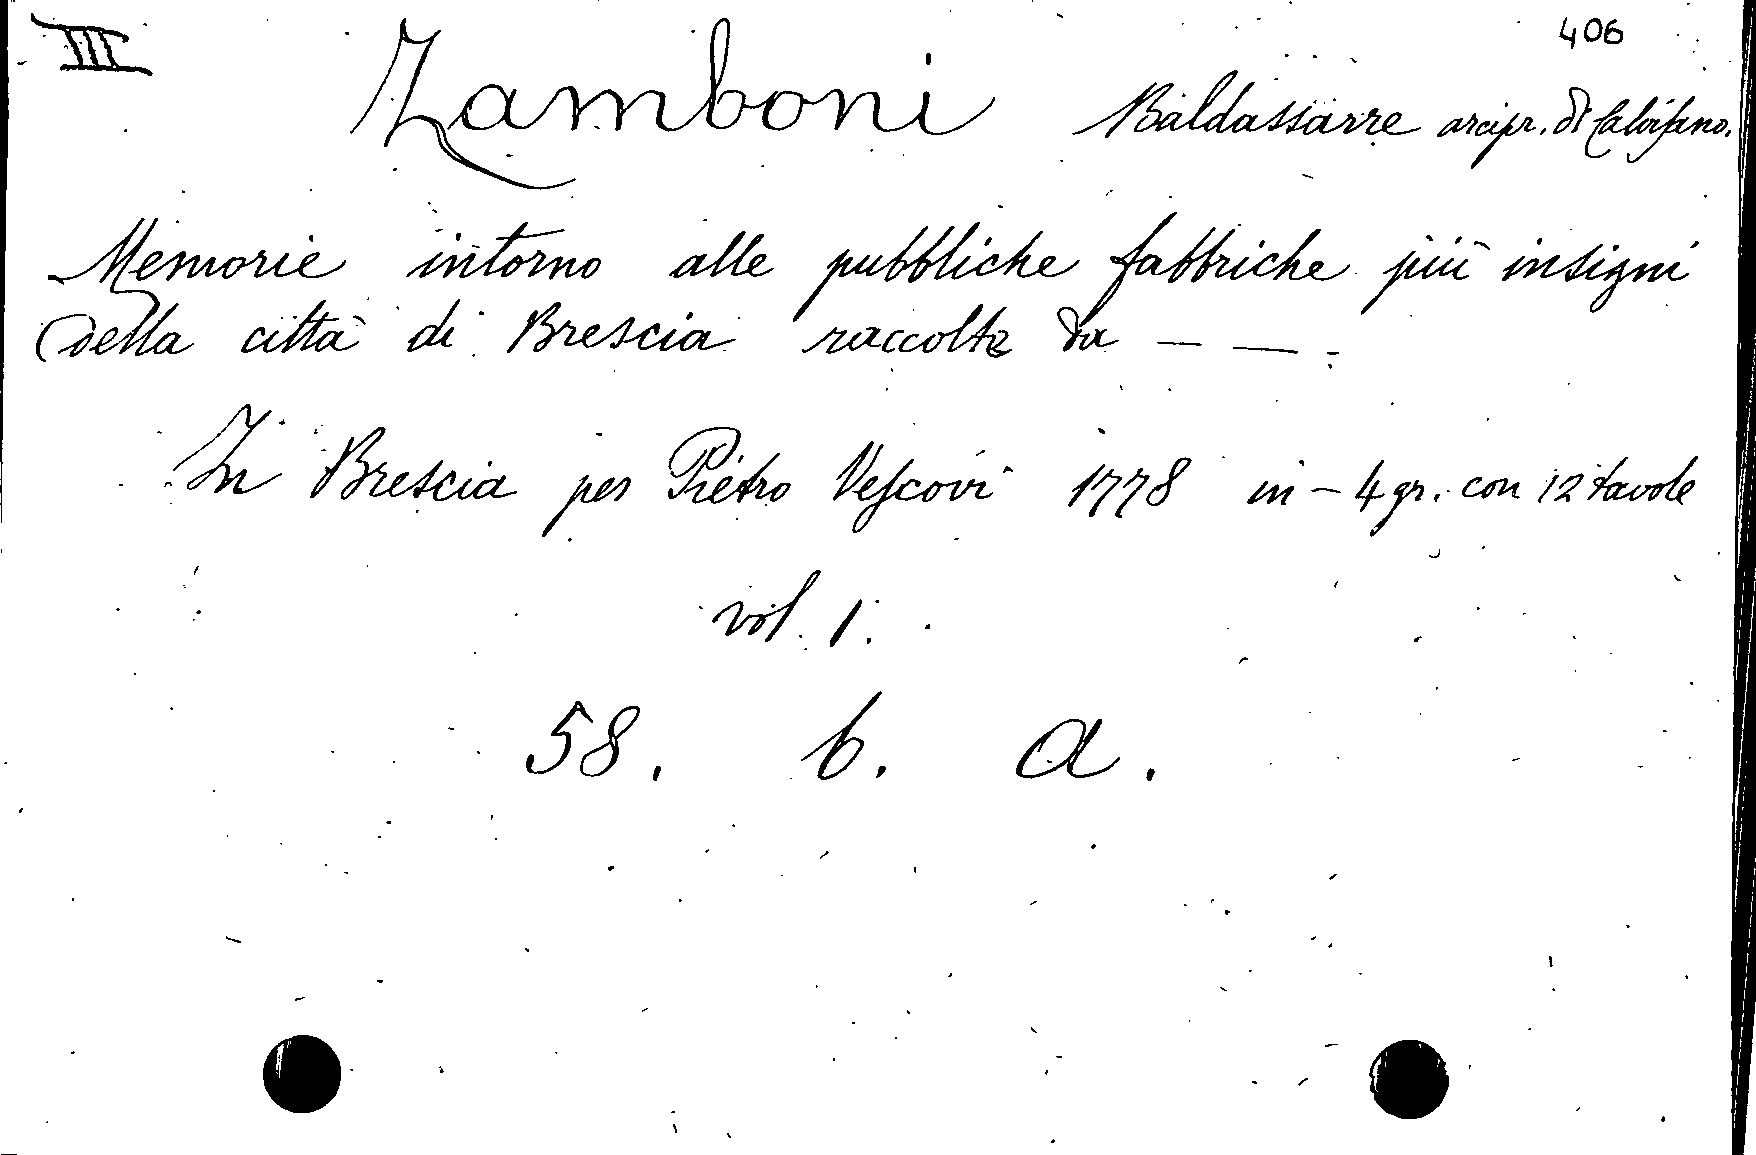 III
406
Zamboni Baldassarre arcipr. di Calvisano.
Memorie intorno alle pubbliche fabbriche più insigni
della città di Brescia raccolte da — — .
In Brescia per Pietro Vescovi 1778 in-4 gr. con 12 tavole
vol. 1.
58. b. a.